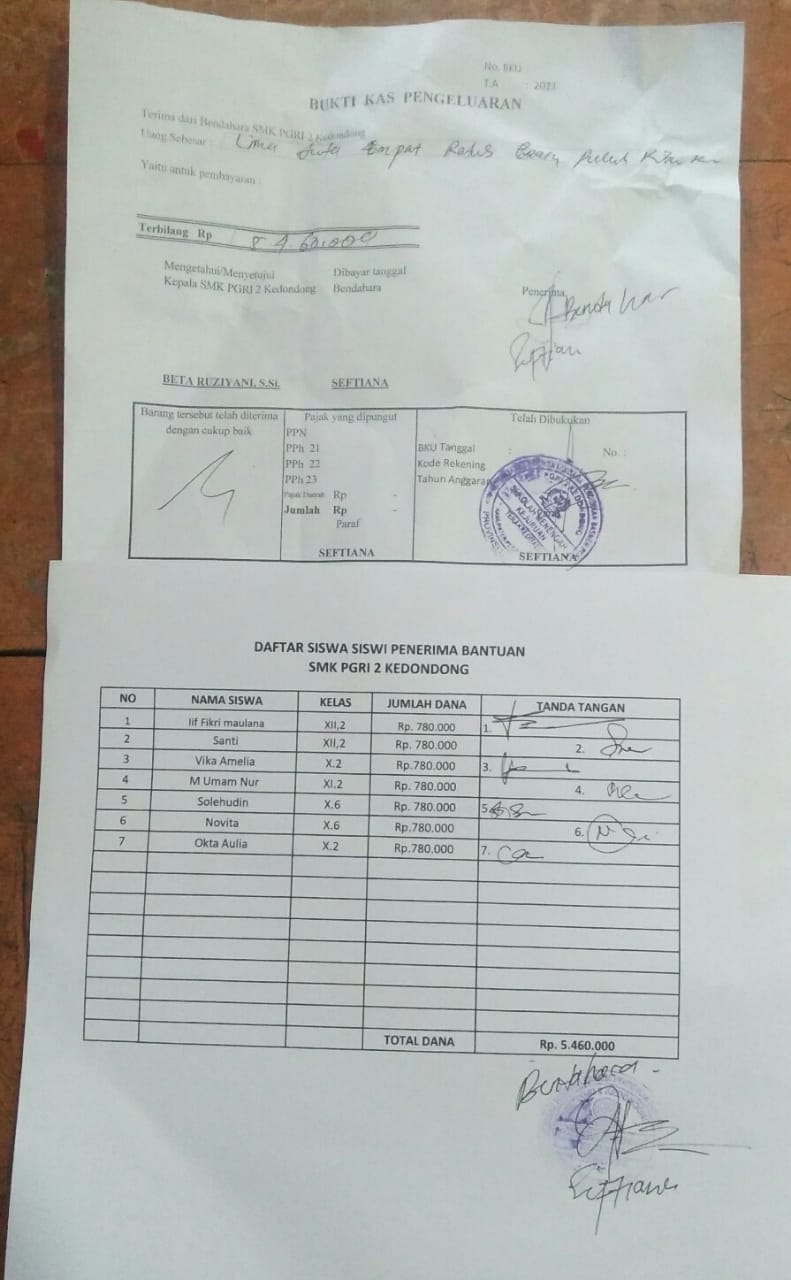 No. BKU
T.A : 2023
BUKTI KAS PENGELUARAN
Terima dari Bendahara SMK PGRI 2 Kedondong
Uang Sebesar : Lima Juta Empat Ratus Enam Puluh Ribu
Yaitu untuk pembayaran
Terbilang Rp 5.460.000
Mengetahui/Menyetujui Dibayar tanggal
Kepala SMK PGRI 2 Kedondong Bendahara Penerima
Bendahara
BETA RUZIYANI, S.Si. SEFTIANA
Barang tersebut telah diterima dengan cukup baik
Pajak yang dipungut
PPN
PPh 21
PPh 22
PPh 23
Pajak Daerah Rp -
Jumlah Rp -
Paraf
SEFTIANA
Telah Dibukukan
BKU Tanggal : No. :
Kode Rekening
Tahun Anggaran
SEKOLAH MENENGAH
KEJURUAN
SEFTIANA
DAFTAR SISWA SISWI PENERIMA BANTUAN
SMK PGRI 2 KEDONDONG
NO NAMA SISWA KELAS JUMLAH DANA TANDA TANGAN
1 Iif Fikri maulana XII,2 Rp. 780.000 1.
2 Santi XII,2 Rp. 780.000 2.
3 Vika Amelia X.2 Rp.780.000 3.
4 M Umam Nur XI.2 Rp. 780.000 4.
5 Solehudin X.6 Rp. 780.000 5
6 Novita X.6 Rp.780.000 6.
7 Okta Aulia X.2 Rp.780.000 7.
TOTAL DANA Rp. 5.460.000
Bendahara